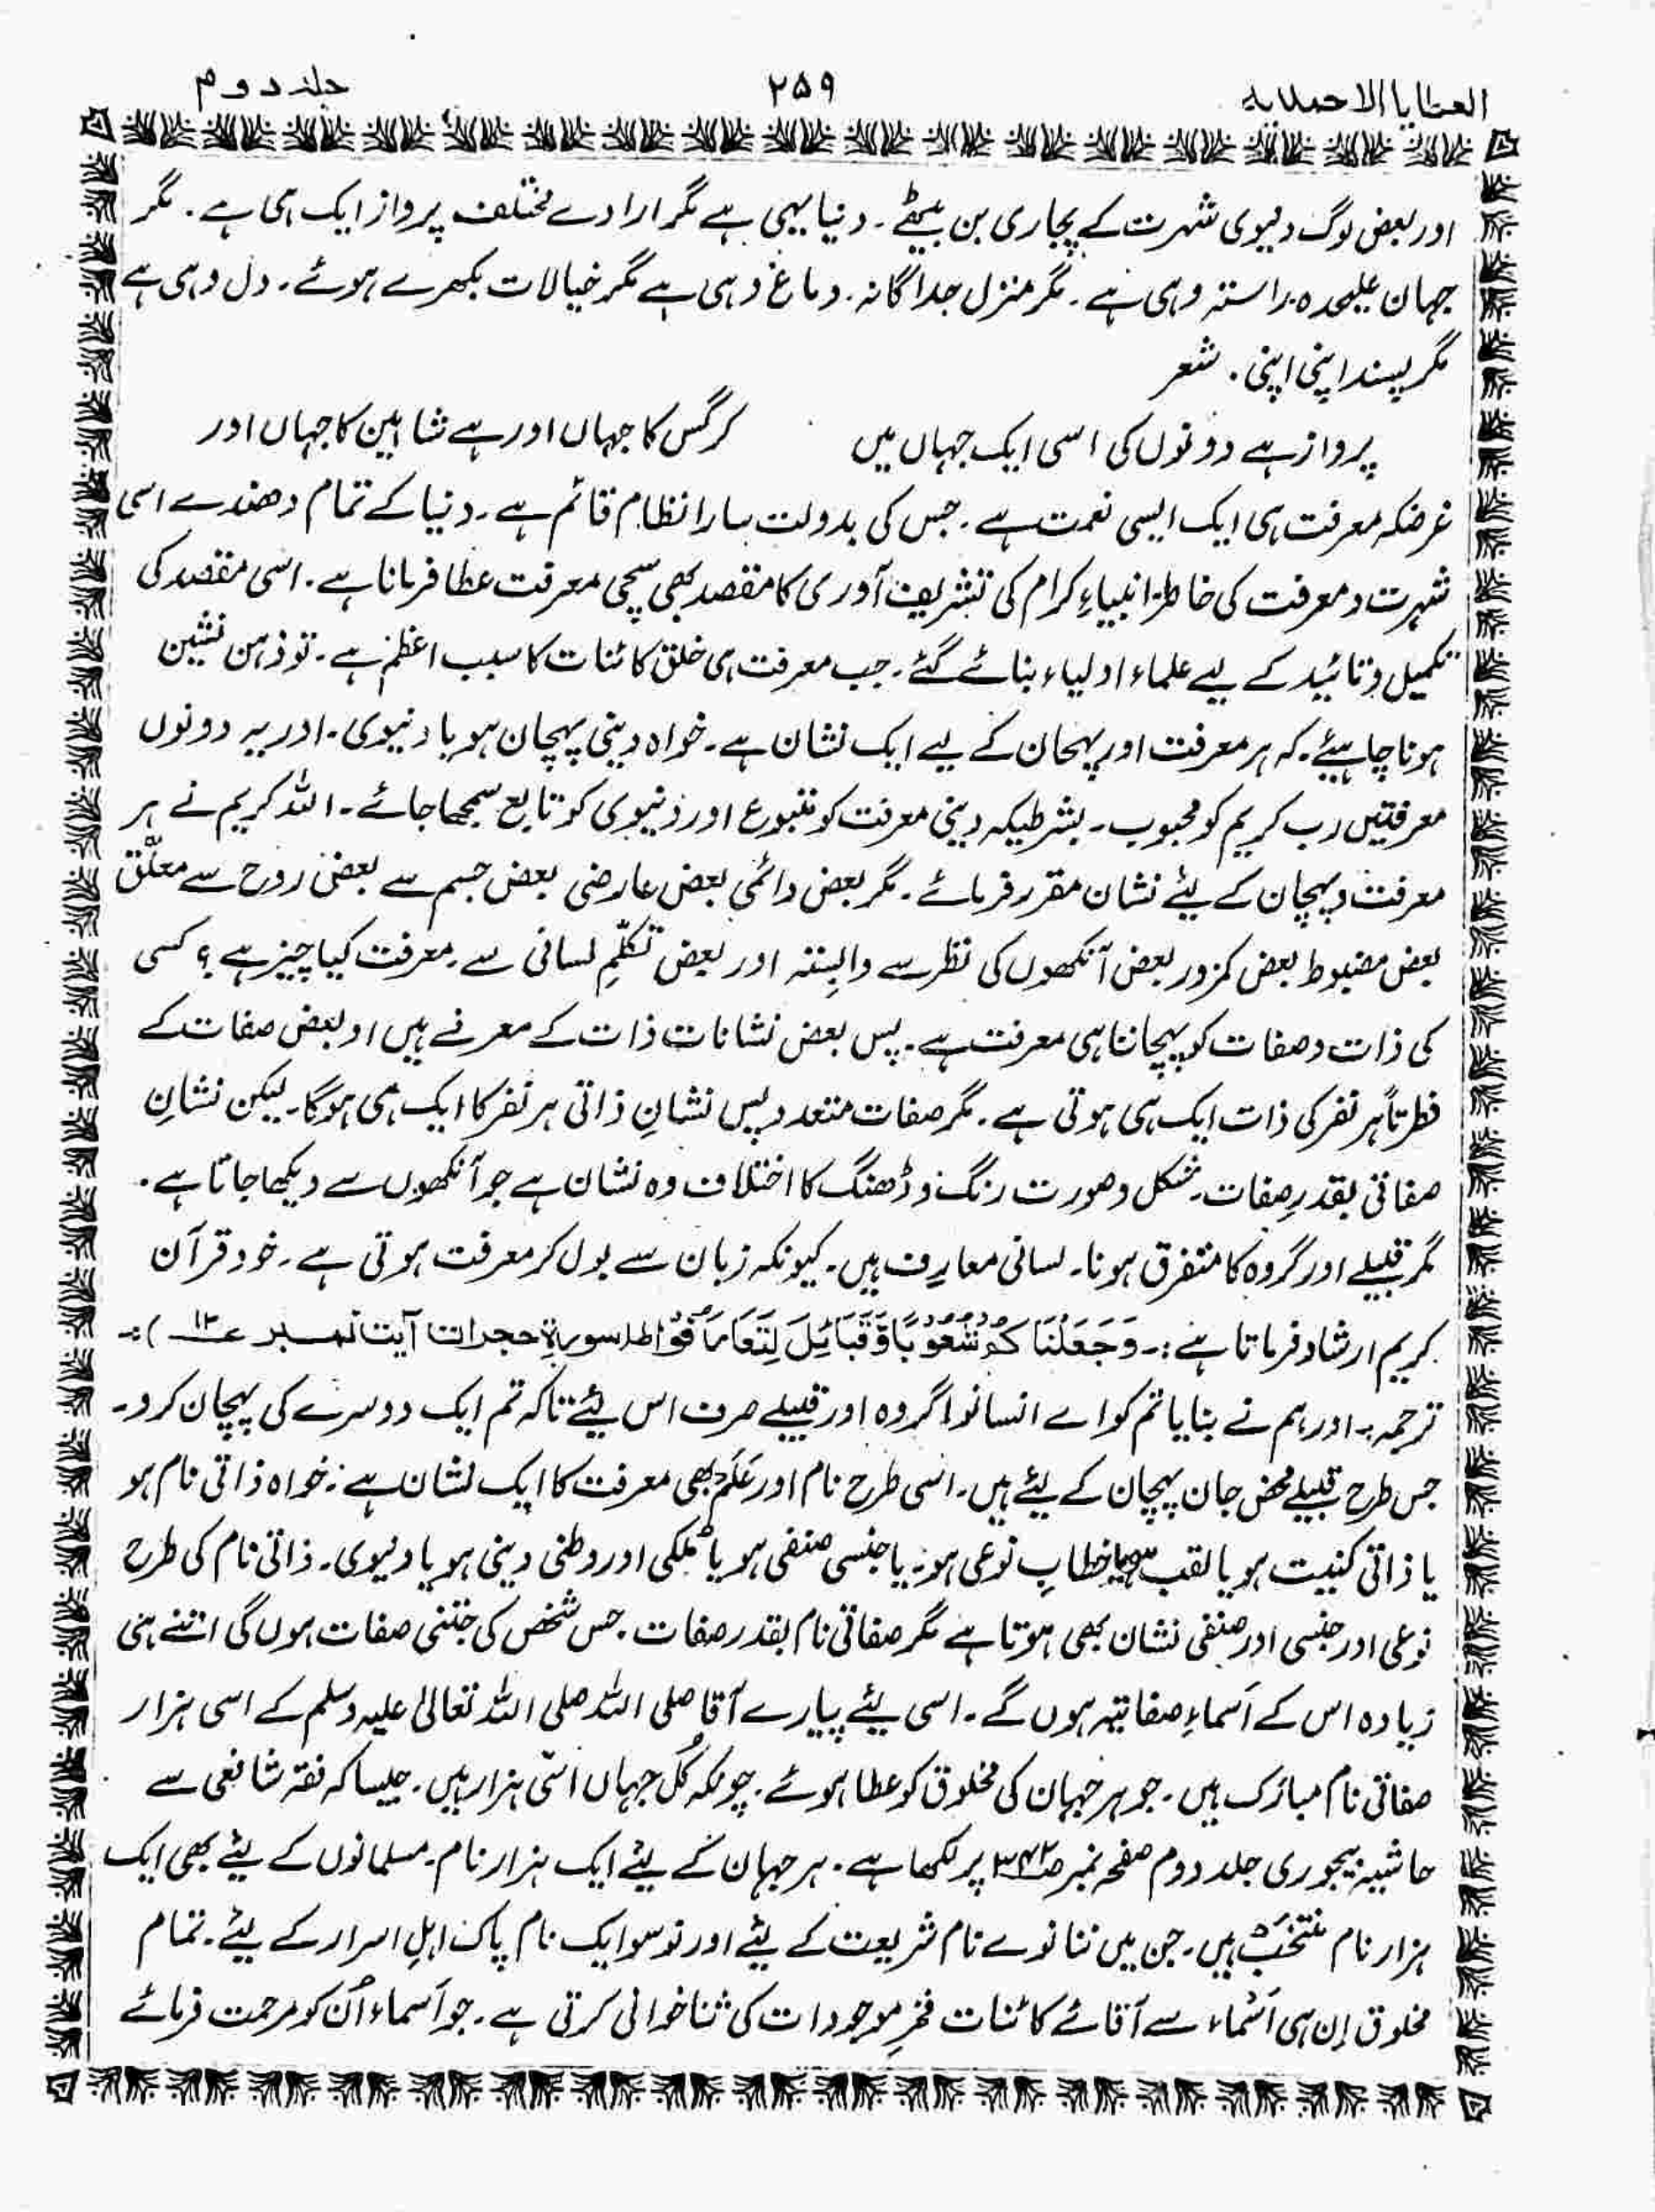 العطایا الاحمدیہ
۲۵۹
جلد دوم
اور بعض لوگ دنیوی شہرت کے پجاری بن بیٹھے۔ دنیا یہی ہے مگر ارادے مختلف پرواز ایک ہی ہے۔ مگر
جہان علیحدہ۔ راستہ وہی ہے۔ مگر منزل جداگانہ۔ دماغ وہی ہے مگر خیالات بکھرے ہوئے۔ دل وہی ہے
مگر پسند اپنی اپنی۔ شعر
پرواز ہے دونوں کی اسی ایک جہاں میں کرگس کا جہاں اور ہے شاہین کا جہاں اور
غرضکہ معرفت ہی ایک ایسی نعمت ہے۔ جس کی بدولت سارا نظام قائم ہے۔ دنیا کے تمام دھندے اسی
شہرت و معرفت کی خاطر انبیاءِ کرام کی تشریف آوری کا مقصد بھی سچی معرفت عطا فرمانا ہے۔ اسی مقصد کی
تکمیل و تائید کے لیے علماء اولیاء بنائے گئے۔ جب معرفت ہی خلق کائنات کا سبب اعظم ہے۔ تو ذہن نشین
ہونا چاہیئے۔ کہ ہر معرفت اور پہچان کے لیے ایک نشان ہے۔ خواہ دینی پہچان ہو یا دنیوی۔ اور یہ دونوں
معرفتیں رب کریم کو محبوب۔ بشرطیکہ دینی معرفت کو متبوع اور دنیوی کو تابع سمجھا جائے۔ اللہ کریم نے ہر
معرفت و پہچان کے لیئے نشان مقرر فرمائے۔ مگر بعض دائمی بعض عارضی بعض جسم سے بعض روح سے معلّق
بعض مضبوط بعض کمزور بعض آنکھوں کی نظر سے وابستہ اور بعض تکلّمِ لسانی سے۔ معرفت کیا چیز ہے؟ کسی
کی ذات و صفات کو پہچاننا ہی معرفت ہے۔ پس بعض نشانات ذات کے معرفے ہیں او بعض صفات کے
فطرتاً ہر نفر کی ذات ایک ہی ہوتی ہے۔ مگر صفات متعدد پس نشانِ ذاتی ہر نفر کا ایک ہی ہوگا۔ لیکن نشانِ
صفاتی بقدرِ صفات۔ شکل و صورت رنگ و ڈھنگ کا اختلاف وہ نشان ہے جو آنکھوں سے دیکھا جاتا ہے۔
مگر قبیلے اور گروہ کا متفرق ہونا۔ لسانی معارِف ہیں۔ کیونکہ زبان سے بول کر معرفت ہوتی ہے۔ خود قرآن
کریم ارشاد فرماتا ہے :۔ وَجَعَلْنَا كُمْ شُعُوْبًا وَّقَبَائِلَ لِتَعَارَفُوْا ط (سورۃ حجرات آیت نمبر ۱۳) :۔
ترجمہ :۔ اور ہم نے بنایا تم کو اے انسانو! گروہ اور قبیلے صرف اس لیئے تاکہ تم ایک دوسرے کی پہچان کرو۔
جس طرح قبیلے محض جان پہچان کے لیئے ہیں۔ اسی طرح نام اور عَلَم بھی معرفت کا ایک نشان ہے۔ خواہ ذاتی نام ہو
یا ذاتی کنیت ہو یا لقب ہو یا خطاب نوعی ہو۔ یا جنسی صنفی ہو یا ملکی اور وطنی دینی ہو یا دنیوی۔ ذاتی نام کی طرح
نوعی اور جنسی اور صنفی نشان بھی ہوتا ہے مگر صفاتی نام بقدر صفات۔ جس شخص کی جتنی صفات ہوں گی اتنے ہی
زیادہ اس کے اَسماءِ صفاتیہ ہوں گے۔ اسی لیئے پیارے آقا صلی اللہ صلی اللہ تعالیٰ علیہ وسلم کے اسی ہزار
صفاتی نام مبارک ہیں۔ جو ہر جہان کی مخلوق کو عطا ہوئے۔ چونکہ کُل جہاں اسّی ہزار ہیں۔ جیسا کہ فقہ شافعی سے
حاشیہ بیجوری جلد دوم صفحہ نمبر پر لکھا ہے۔ ہر جہان کے لیئے ایک ہزار نام۔ مسلمانوں کے لیئے بھی ایک
ہزار نام منتخب ہیں۔ جن میں ننانوے نام شریعت کے لیئے اور نو سو ایک نام پاک اہلِ اسرار کے لیئے۔ تمام
مخلوق اِن ہی اَسْماء سے آقائے کائنات فخرِ موجودات کی ثنا خوانی کرتی ہے۔ جو اَسماء اُن کو مرحمت فرمائے